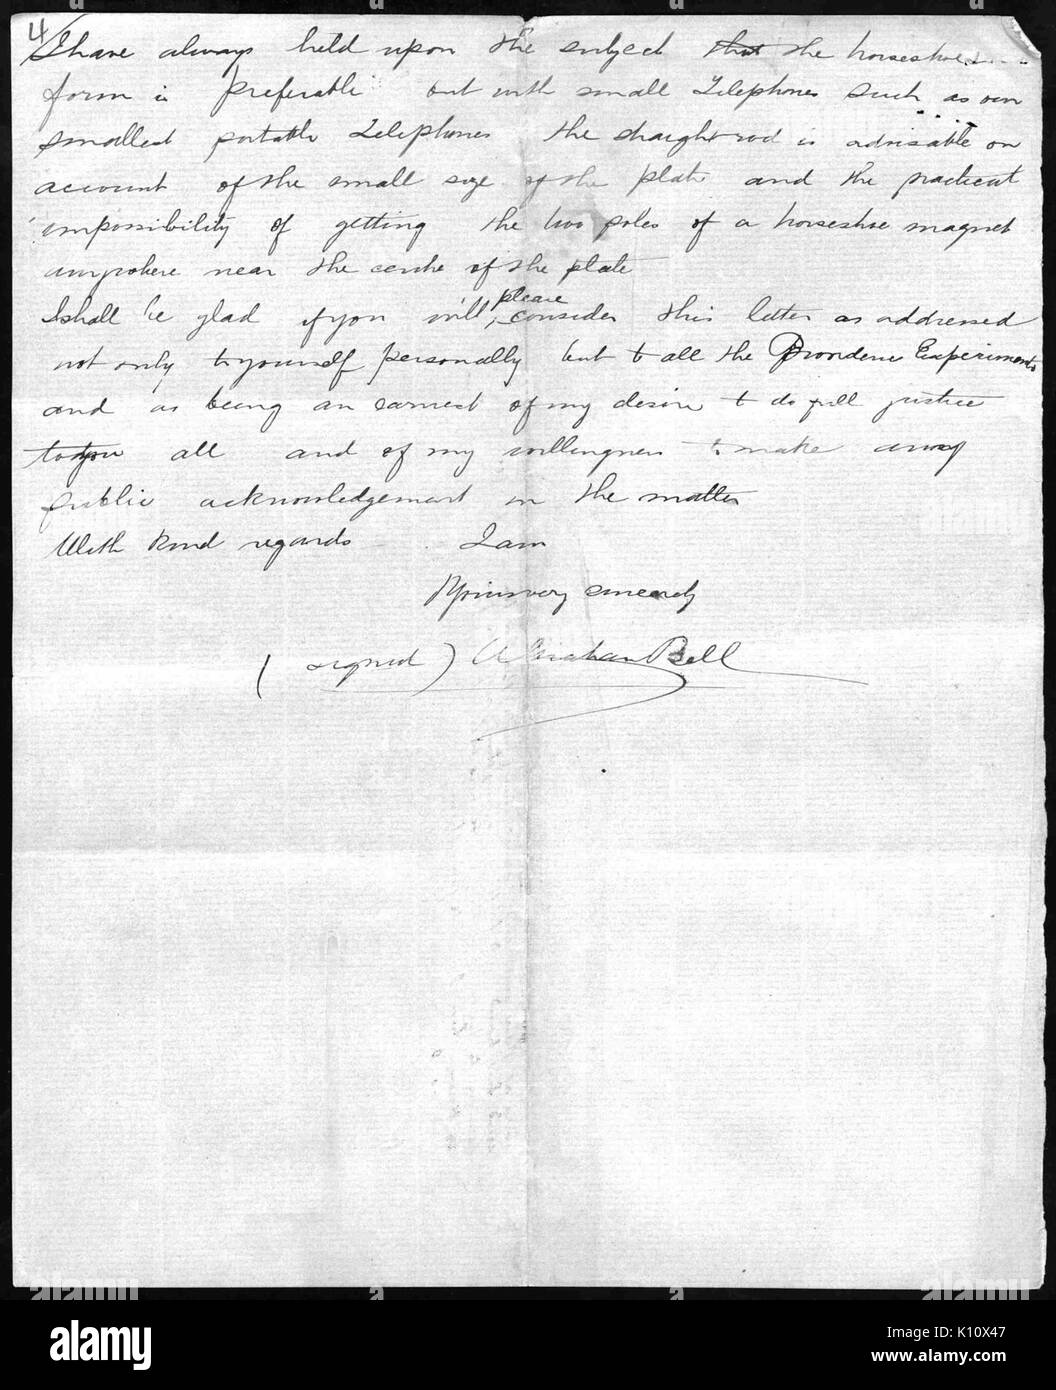 4
I have always held upon the subject that the horseshoe....
form is preferable but with small Telephones such as our
smallest portable Telephones the straight rod is advisable on
account of the small size of the plate and the practical
impossibility of getting the two poles of a horseshoe magnet
anywhere near the centre of the plate
I shall be glad if you will, please consider this letter as addressed
not only to yourself personally but to all the Providence Experiments
and as being an earnest of my desire to do full justice
to you all and of my willingness to make any
public acknowledgement in the matter
With kind regards I am
Yours very sincerely
(signed) A Graham Bell
alamy
Image ID: K10X47
www.alamy.com